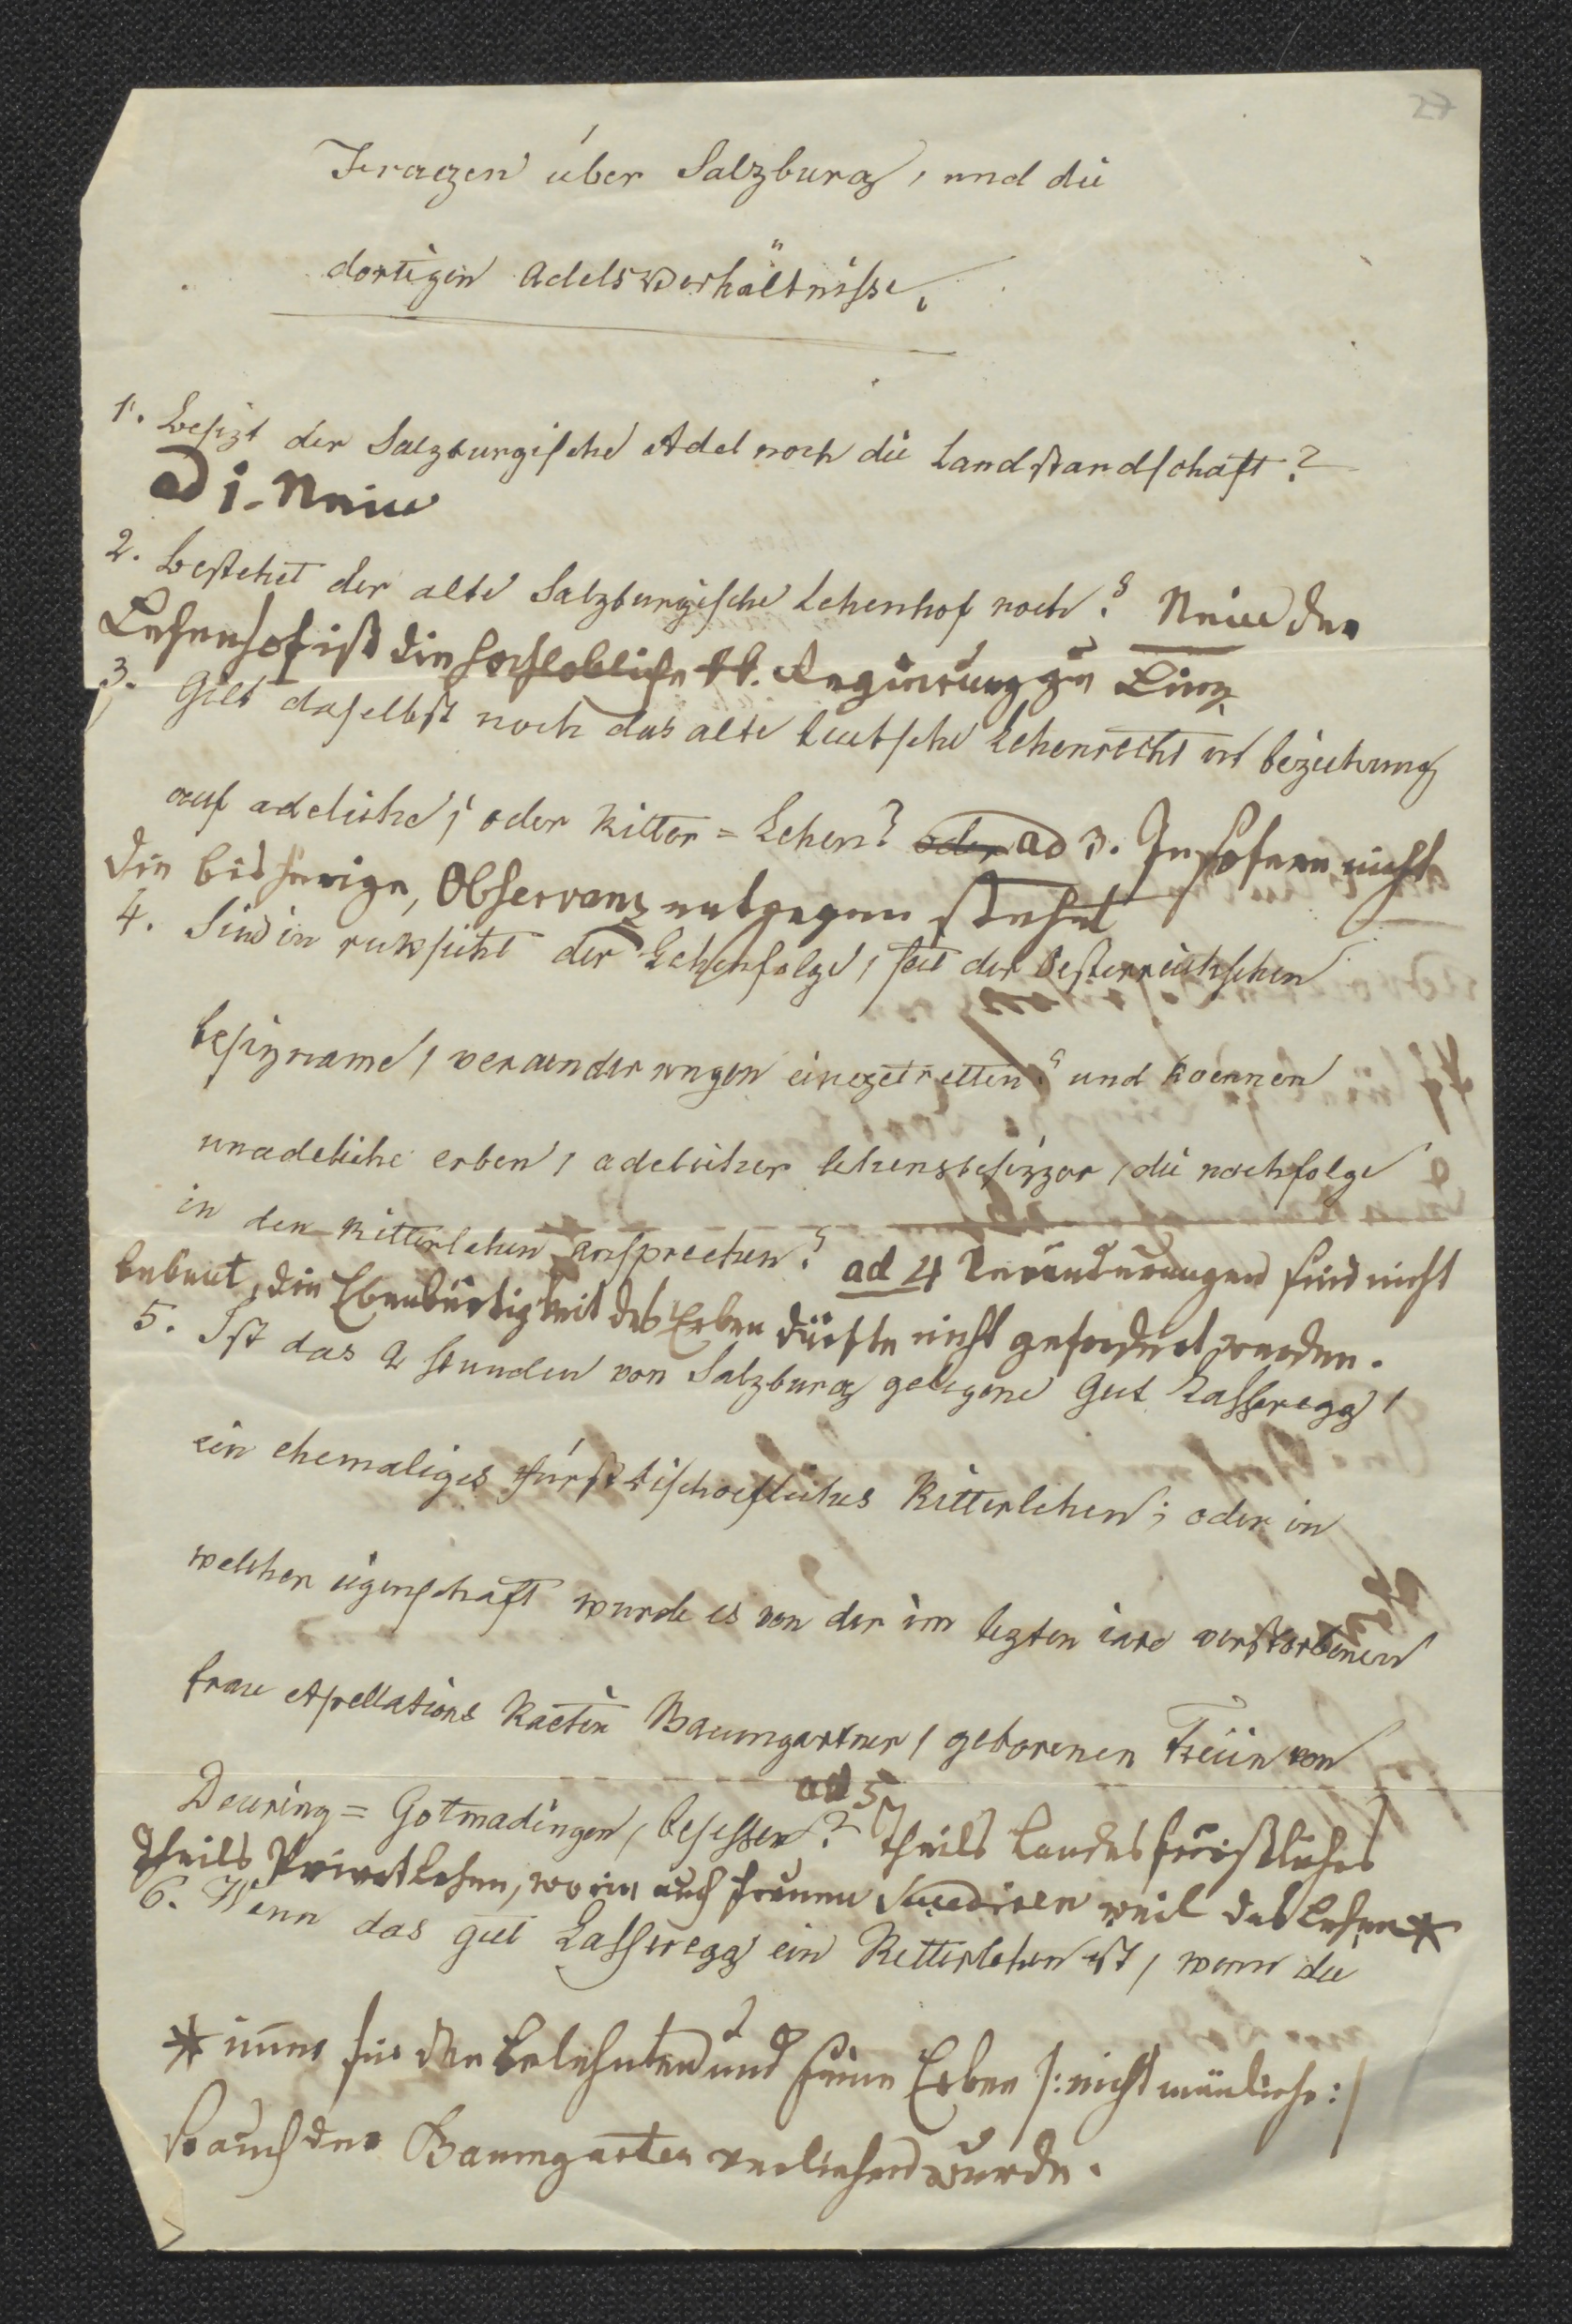 27
Fragen über Salzburg, und die
dortigen adelsverhältnisse.
1. besizt der Salzburgische Adel noch die Landstandschaft?
ad 1. Nein
2. bestehet der alte Salzburgische Lehenhof noch? Nein der
Lehenhof ist die hochlobliche kk. Regierung zu Linz
3. Gilt daselbst noch das alte teutsche Lehenrecht in beziehung
auf adeliche, oder Ritter=Lehen? oder ad 3. In sofern nicht
die bisherige, Observanz entgegen stehet
4. Sind in ruksicht der Lehenfolge, seit der Oesterreichischen
besizname, veraenderungen eingetretten? und koennen
unadeliche erben, adelicher lehensbesizzer, die nachfolge
in den Ritterlehen ansprechen? ad 4 Veränderungen sind nicht
bekant, die Ebenbürtigkeit des Erben dürfte nicht gefordert werden.
5. Ist das 2 stunden von Salzburg gelegene Gut Lasseregg,
ein ehemaliges fürstbischoefliches Ritterlehen; oder in
welcher eigenschaft wurde es von der im lezten iare verstorbenen
frau Apellations Raetin Baumgartner, geborenen Freiin von
Deuring=Gotmadingen, besessen? ad 5 Theils Landesfürstliches
theils Privatlehen, worin auch frauen Succediren weil das Lehen *
6. Wenn das gut Lasseregg ein Ritterlehen ist, wenn die
* immer für den Belehnten und seine Erben /: nicht mänliche :/
so auch der Baumgarten verliehen wurde.